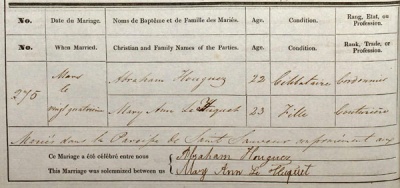 No. Date du Mariage. Noms de Baptême et de Famille des Mariés. Age. Condition. Rang, Etat, ou Profession.
No. When Married. Christian and Family Names of the Parties. Age. Condition. Rank, Trade, or Profession.
275 Mars Abraham Houguez 22 Célibataire Cordonnier
le
vingt quatrième Mary Ann Le Huquet 23 Fille Couturière
Mariés dans la Paroisse de Saint Sauveur
Ce Mariage a été célébré entre nous Abraham Houguez
This Marriage was solemnized between us Mary Ann Le Huquet